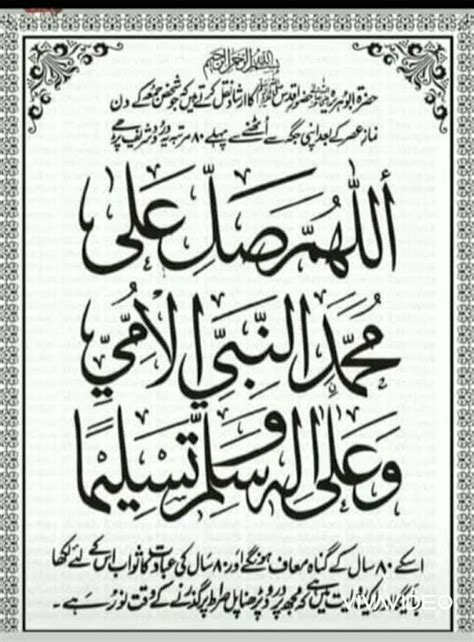 بسم الله الرحمن الرحيم
حضرت ابوہریرہؓ حضور اقدس ﷺ کا ارشاد نقل کرتے ہیں کہ جو شخص جمعہ کے دن
نماز عصر کے بعد اپنی جگہ سے اُٹھنے سے پہلے ۸۰ مرتبہ یہ درود شریف پڑھے
أَللّٰهُمَّ صَلِّ عَلٰى
مُحَمَّدِ النَّبِيِّ الْاُمِّيِّ
وَعَلٰى اٰلِهٖ وَسَلِّمْ تَسْلِيْمًا
اسکے ۸۰ سال کے گناہ معاف ہونگے اور ۸۰ سال کی عبادت کا ثواب اس کے لئے لکھا
جائیگا ایک روایت میں ہے کہ مجھ پر درود پڑھنا پل صراط پر گذرنے کے وقت نور ہے۔
VIVAVIDEO